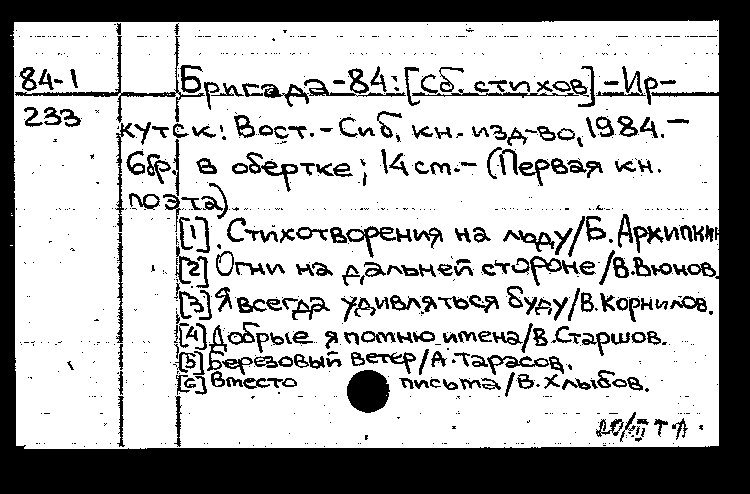 84-1 Бригада-84: [Сб. стихов].-Ир-
233 кутск: Вост.-Сиб. кн. изд-во, 1984.-
6бр. в обертке; 14 cm.- (Первая кн.
поэта).
[1]. Стихотворения на льду/Б. Архипкин
[2] Огни на дальней стороне/В.Вьюнов.
[3] Я всегда удивляться буду/В.Корнилов.
[4] Добрые я помню имена/В.Старшов.
[5] Березовый ветер/А.Тарасов.
[6] Вместо письма/В.Хлыбов.